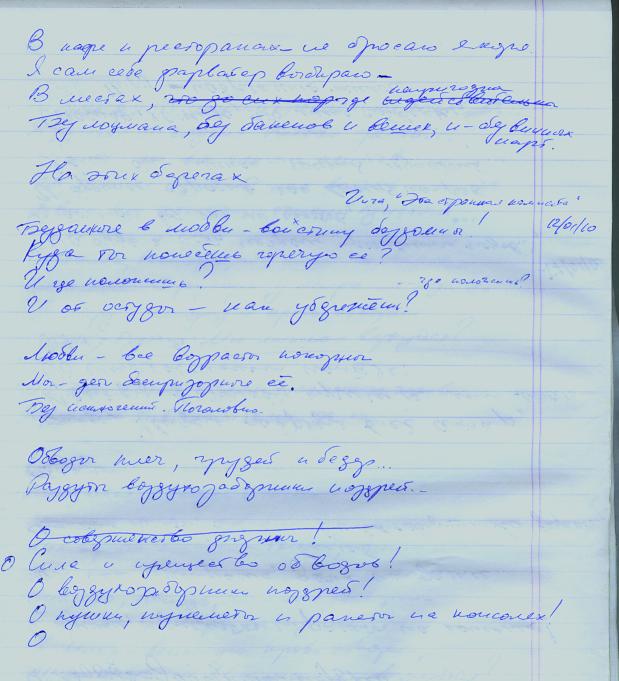 В кафе и ресторанах не бросаю якоря.
Я сам себе фарватер выбираю –
непригодна
В местах, что до сих пор где недействительна
Без лоцмана, без бакенов и вешек, и – без
карт.
На этих берегах
"Эта странная комната"
12/01/10
Бездомные в любви – воистину бездомны!
Куда ты понесёшь горячую её?
И где положишь?
где положишь?
И от остуды – как убережёшь?
Любви – все возрасты покорны
Мы – дети беспризорные её.
Без исключений. Поголовно.
Обводы плеч, грудей и бедер...
Раздуты воздухозаборники ноздрей...
О совершенство !
О Сила и изящество обводов!
О воздухозаборники ноздрей!
О пушки, пулеметы и ракеты на консолях!
О